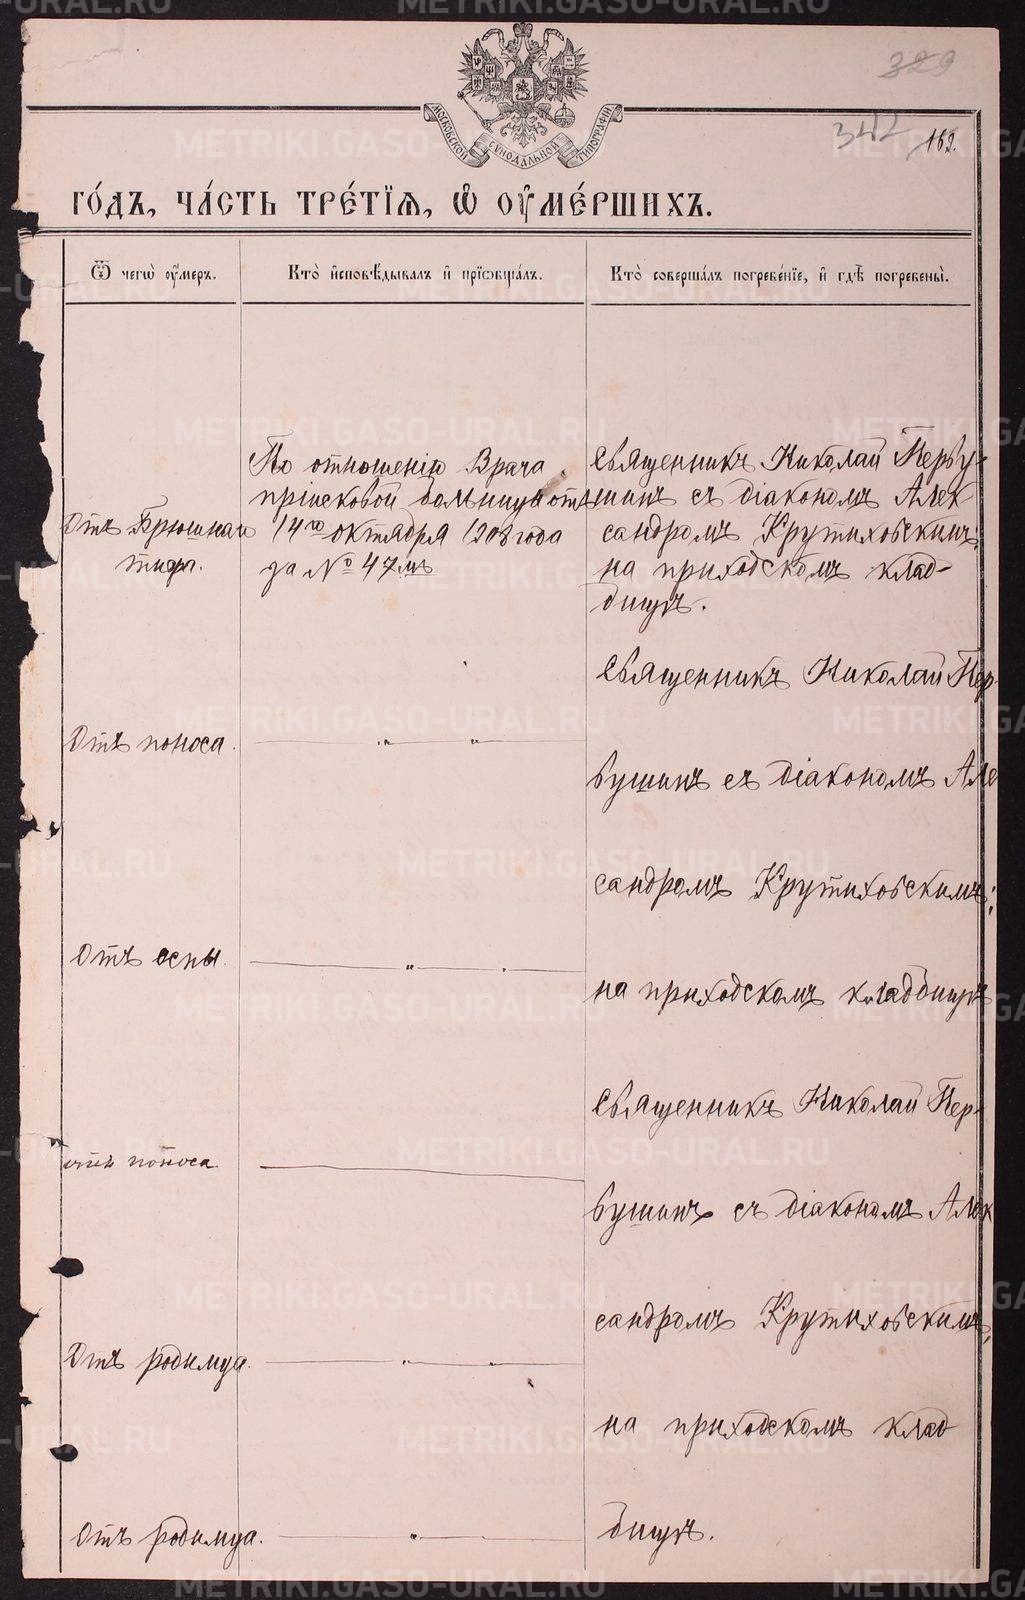 МОСКОВСКОЙ СѴНОДАЛЬНОЙ ТИПОГРАФІИ
329
342 162.
ГО́ДЪ, ЧА́СТЬ ТРЕ́ТІѦ, Ѡ҆ ОУ҆МЕ́РШИХЪ.
Ѿ чегѡ̀ оу҆́меръ.
Кто̀ и҆сповѣ́дывалъ и҆ прїѡбща́лъ.
Кто̀ соверша́лъ погребе́нїе, и҆ гдѣ̀ погребены̀.
Отъ Брюшнаго
тифа.
По отношенію Врача
пріисковой больницы отъ
14го октября 1908 года
за № 47мъ
Священникъ Николай Перву-
шинъ съ діакономъ Алек
сандромъ Крутиховскимъ;
на приходскомъ клад-
бищѣ.
Отъ поноса.
Священникъ Николай Пер-
вушинъ съ діакономъ Але
Отъ оспы.
сандромъ Крутиховскимъ;
на приходскомъ кладбищѣ
отъ поноса.
Священникъ Николай Пер-
вушинъ съ діакономъ Алек
Отъ родимца.
сандромъ Крутиховскимъ;
на приходскомъ клад
Отъ родимца.
бищѣ.
METRIKI.GASO-URAL.RU